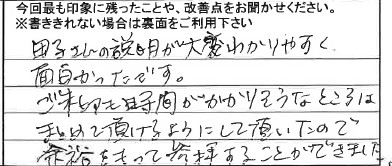 今回最も印象に残ったことや、改善点をお聞かせください。
※書ききれない場合は裏面をご利用下さい
さんの説明が大変わかりやすく
面白かったです。
ご朱印も時間がかかりそうなところは
まとめて頂けるようにして頂いたので
余裕をもって参拝することができました